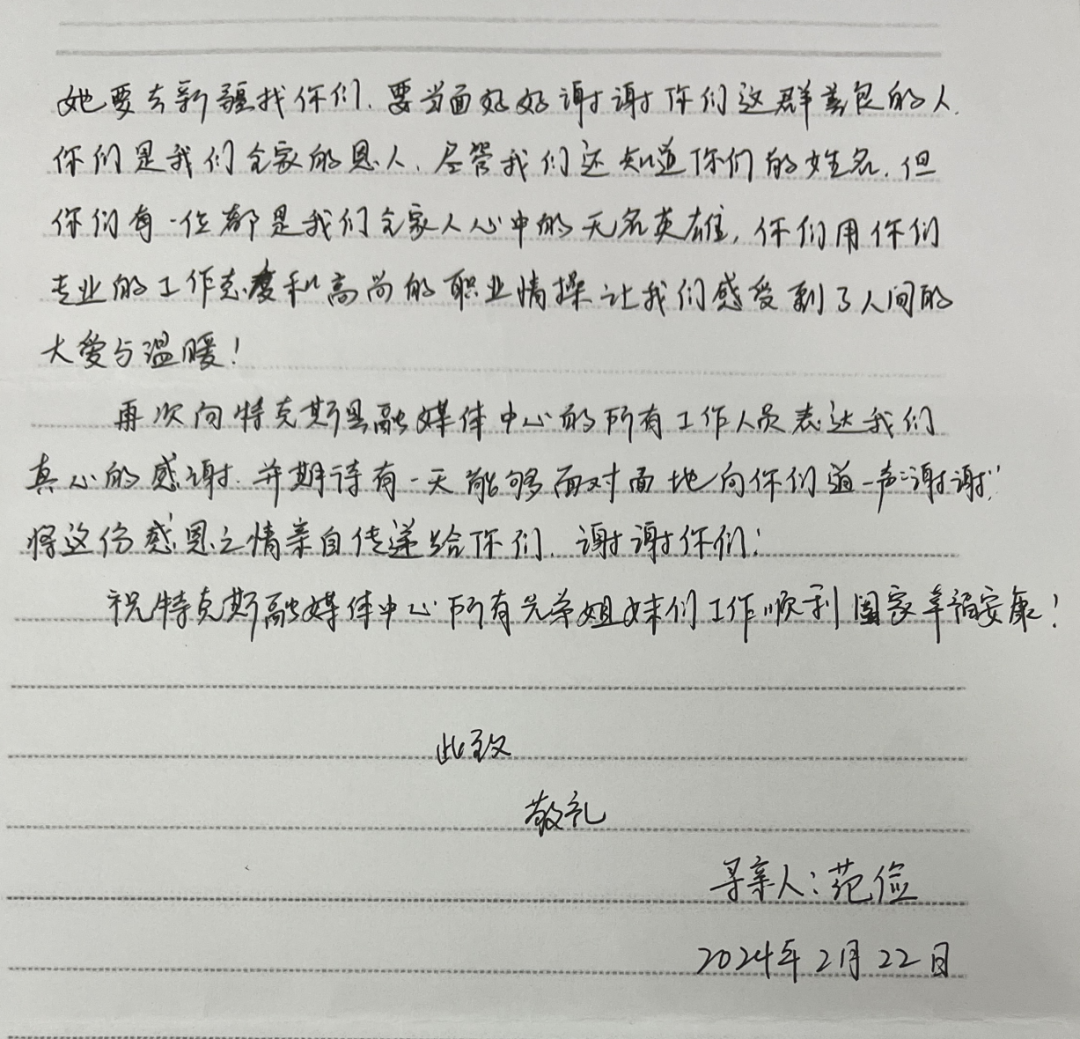 她要去新疆找你们.要当面好好谢谢你们这群善良的人.
你们是我们全家的恩人.尽管我们还知道你们的姓名.但
你们有一位都是我们全家人心中的无名英雄,你们用你们
专业的工作态度和高尚的职业情操让我们感受到了人间的
大爱与温暖!
再次向特克斯县融媒体中心的所有工作人员表达我们
真心的感谢.并期待有一天能够面对面地向你们道一声“谢谢”
将这份感恩之情亲自传递给你们.谢谢你们!
祝特克斯融媒体中心所有兄弟姐妹们工作顺利 阖家幸福安康!
此致
敬礼
寻亲人:范俭
2024年2月22日